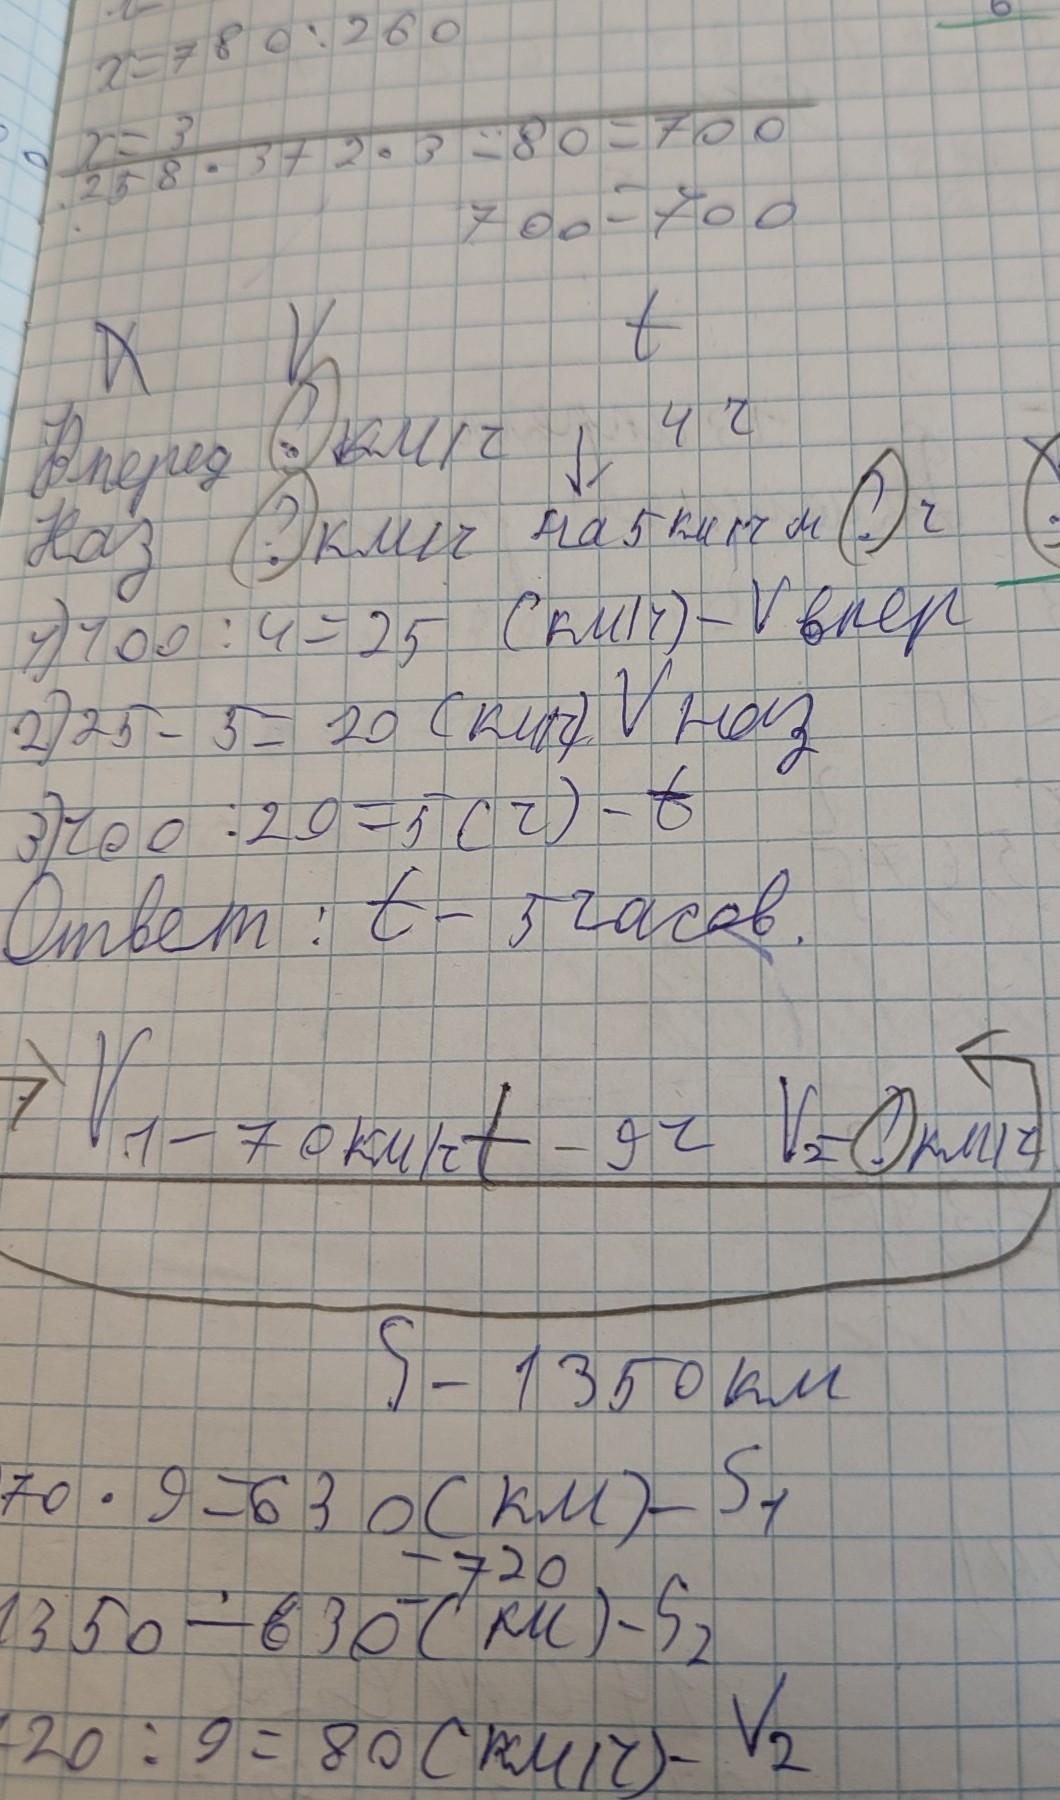 x=780:260
x=3
258·372·3-80=700
700=700
V t
Вперед ?км/ч 4ч
Наз ?км/ч на 5 км/ч м ?ч
1)100:4=25 (км/ч)-V впер
2)25-5=20(км/ч) V наз
3)100:20=5(ч)-t
Ответ: t-5часов.
V1-70км/ч t-9ч V2-?км/ч
S-1350км
70·9=630(км)-S1
-720
1350-630(км)-S2
20:9=80(км/ч)-V2